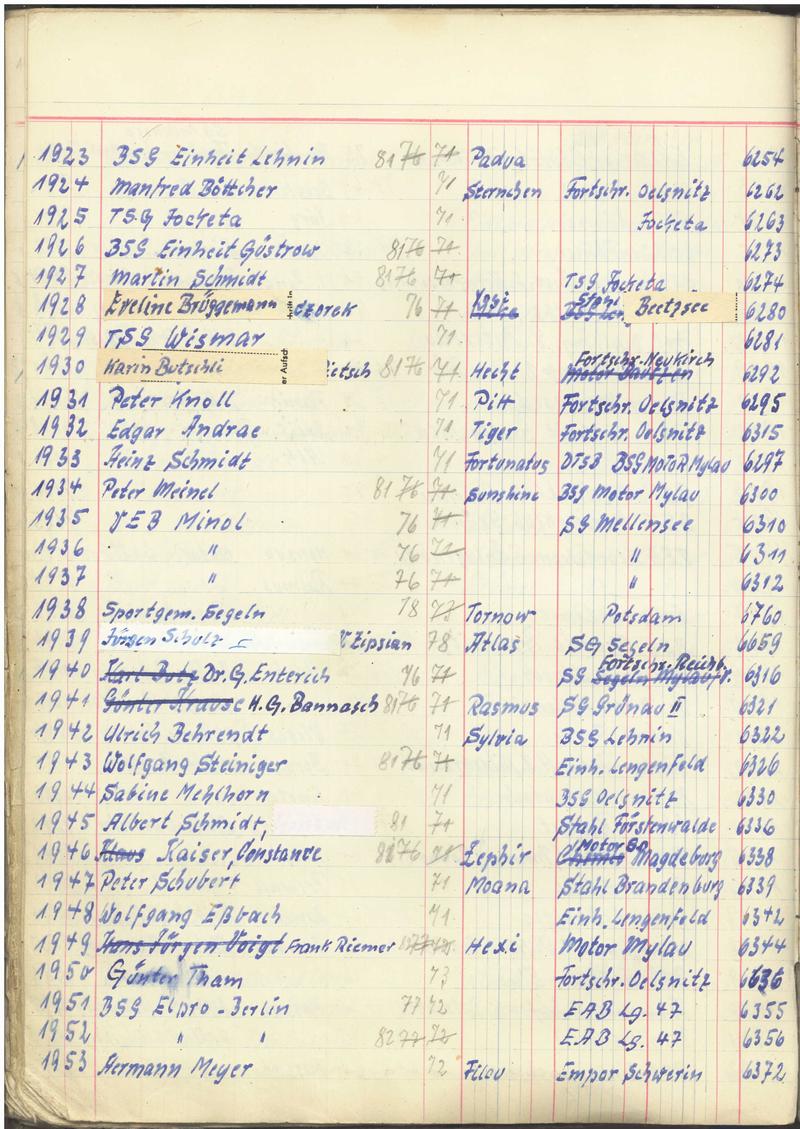 1923 BSG Einheit Lehnin 81 76 71 Padua 6254
1924 Manfred Böttcher 71 Sternchen Fortschr. Oelsnitz 6262
1925 TSG Jocketa 71 Jocketa 6263
1926 BSG Einheit Güstrow 81 76 71 6273
1927 Martin Schmidt 81 76 71 TSG Jocketa 6274
1928 Eveline Brüggemann czorek 76 71 Stahl Beetzsee 6280
1929 TSG Wismar 71 6281
1930 Karin Butschli ietsch 81 76 71 Hecht Fortschr. Neukirch Motor Bautzen 6292
1931 Peter Knoll 71 Pitt Fortschr. Oelsnitz 6295
1932 Edgar Andrae 71 Tiger Fortschr. Oelsnitz 6315
1933 Heinz Schmidt 71 Fortunatus DTSB BSG Motor Mylau 6297
1934 Peter Meinel 81 76 71 Sunshine BSG Motor Mylau 6300
1935 VEB Minol 76 71 SG Mellensee 6310
1936 " 76 71 " 6311
1937 " 76 71 " 6312
1938 Sportgem. Segeln 78 73 Tornow Potsdam 6760
1939 Jürgen Schulz Zipsian 78 Atlas SG Segeln 6659
1940 Karl Butz Dr. G. Enterich 76 71 SG Segeln Mylau Fortschr. Reichb. 6316
1941 Günter Krause H.G. Bannasch 81 76 71 Rasmus SG Grünau II 6321
1942 Ulrich Behrendt 71 Sylvia BSG Lehnin 6322
1943 Wolfgang Steiniger 81 76 71 Einh. Lengenfeld 6326
1944 Sabine Mehlhorn 71 BSG Oelsnitz 6330
1945 Albert Schmidt, 81 71 Stahl Fürstenwalde 6336
1946 Klaus Kaiser, Constanze 81 76 71 Zephir Chemie Motor Magdeburg 6338
1947 Peter Schubert 71 Moana Stahl Brandenburg 6339
1948 Wolfgang Eßbach 71 Einh. Lengenfeld 6342
1949 Hans Jürgen Voigt Frank Riemer 77 Hexi Motor Mylau 6344
1950 Günter Tham 73 Fortschr. Oelsnitz 6636
1951 BSG Elpro-Berlin 77 72 EAB Lg. 47 6355
1952 " " 82 77 72 EAB Lg. 47 6356
1953 Hermann Meyer 72 Filou Empor Schwerin 6372